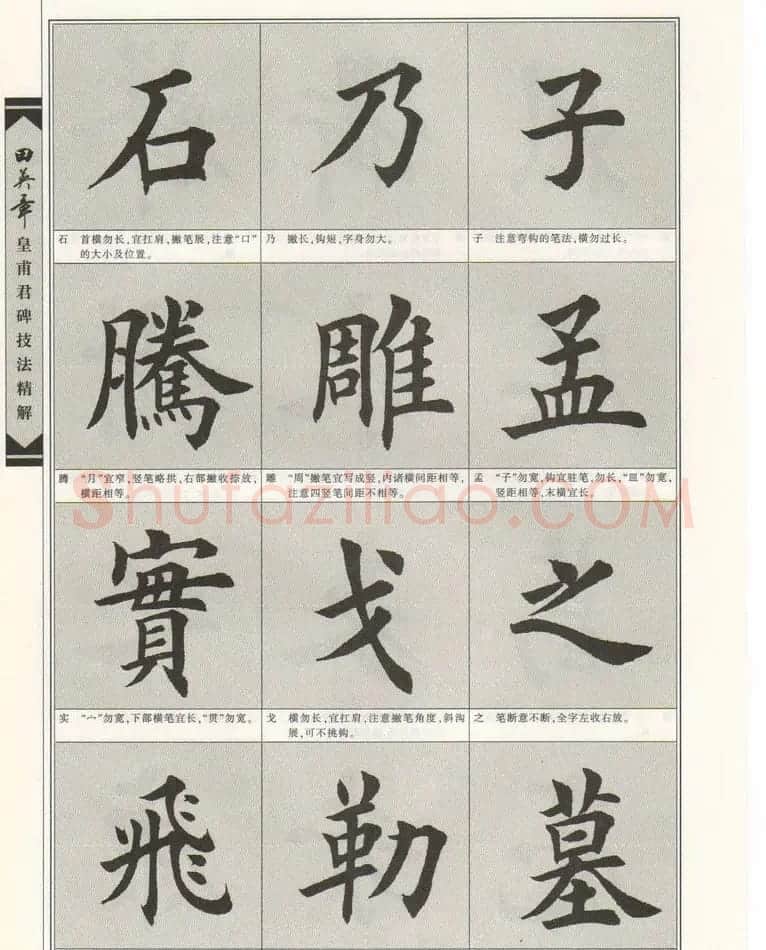 田英章
皇甫君碑技法精解
石 乃 子
石 首横勿长,宜扛肩,撇笔展,注意“口”
的大小及位置。
乃 撇长,钩短,字身勿大。
子 注意弯钩的笔法,横勿过长。
騰 雕 孟
腾 “月”宜窄,竖笔略拱,右部撇收捺放,
横距相等。
雕 “周”撇笔宜写成竖,内诸横间距相等,
注意四竖笔间距不相等。
孟 “子”勿宽,钩宜驻笔,勿长,“皿”勿宽,
竖距相等,末横宜长。
Shufaziliao.COM
實 戈 之
实 “宀”勿宽,下部横笔宜长,“贯”勿宽。
戈 横勿长,宜扛肩,注意撇笔角度,斜沟
展,可不挑钩。
之 笔断意不断,全字左收右放。
飛 勒 墓